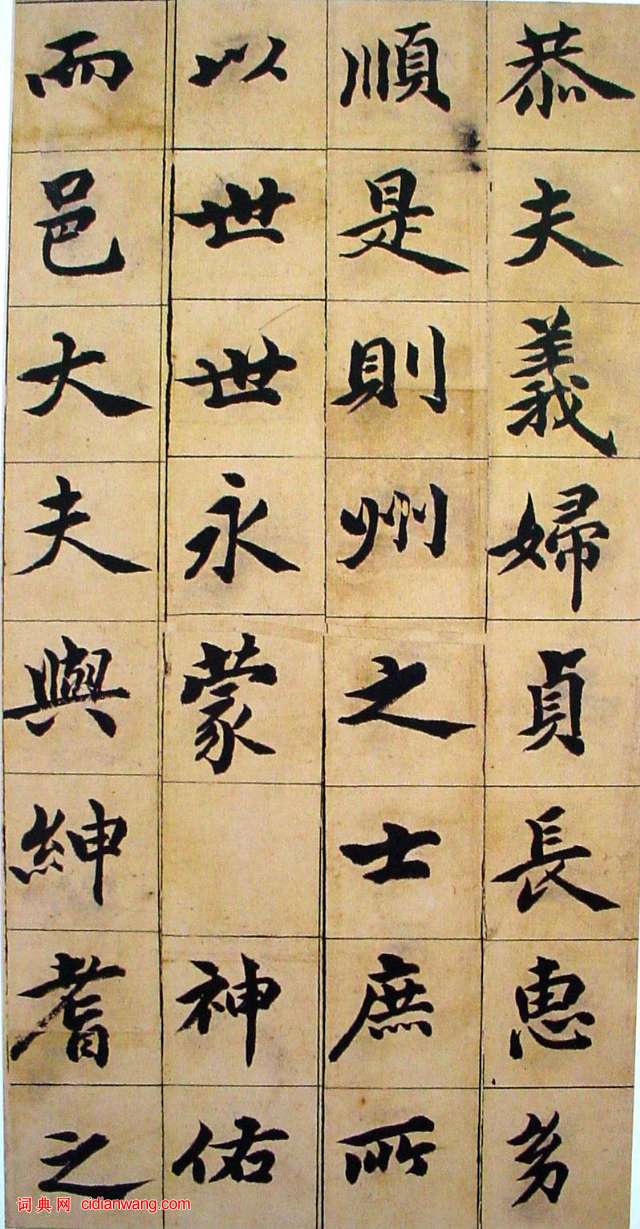 恭夫義婦貞長惠幼
順是則州之士庶所
以世世永蒙 神佑
而邑大夫與紳耆之
词典网 cidianwang.com